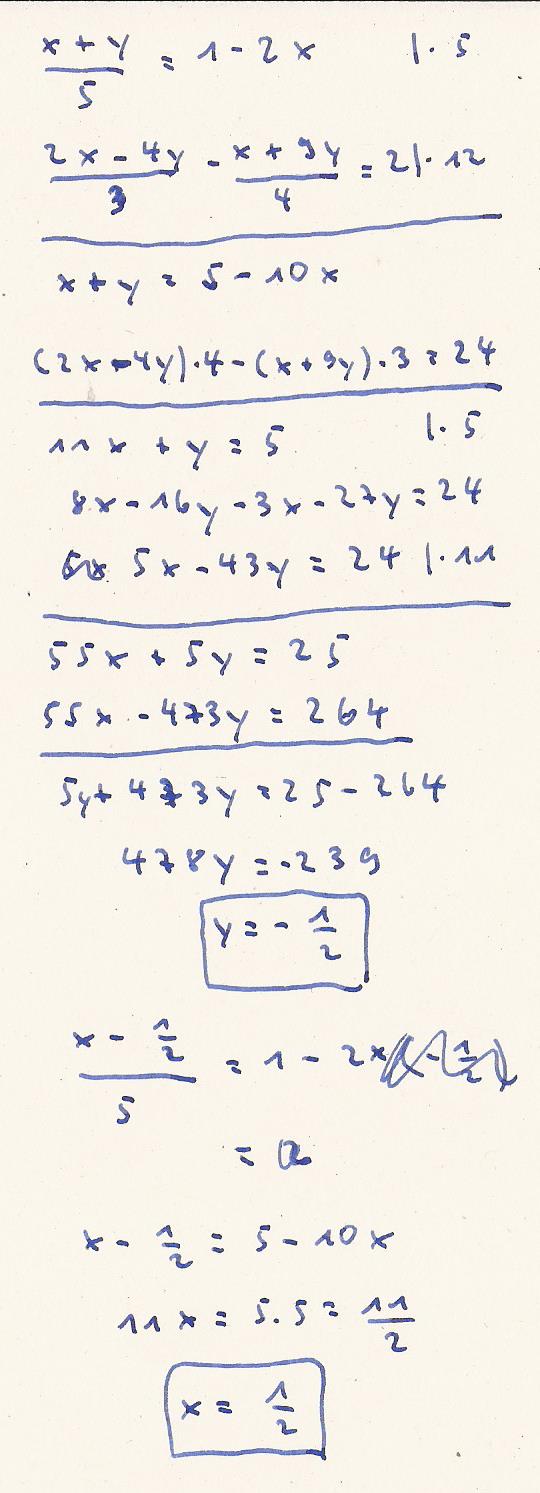 (x + y)/5 = 1 - 2x |· 5
(2x - 4y)/3 - (x + 9y)/4 = 2 |· 12
x + y = 5 - 10x
(2x - 4y) · 4 - (x + 9y) · 3 = 24
11x + y = 5 |· 5
8x - 16y - 3x - 27y = 24
5x - 43y = 24 |· 11
55x + 5y = 25
55x - 473y = 264
5y + 473y = 25 - 264
478y = -239
y = - 1/2
(x - 1/2)/5 = 1 - 2x
=
x - 1/2 = 5 - 10x
11x = 5.5 = 11/2
x = 1/2